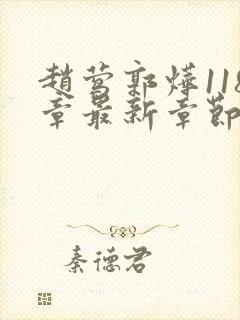 趙莺郭燁118
章最新章節
秦德君